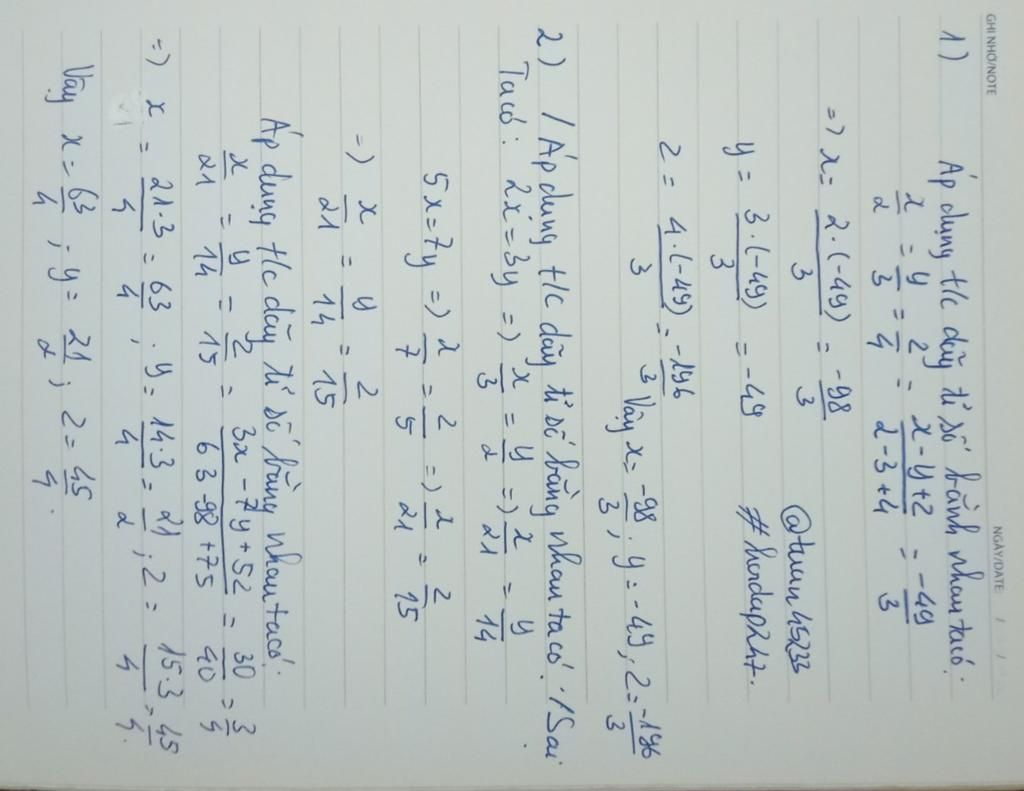 GHI NHỚ/NOTE
NGÀY/DATE: / /
1) Áp dụng t/c dãy tỉ số bằnh nhau ta có:
x/2 = y/3 = z/4 = x-y+z/2-3+4 = -49/3
=) x = 2.(-49)/3 = -98/3
@tuan45233
y = 3.(-49)/3 = -49
#hoidap247.
z = 4.(-49)/3 = -196/3
Vậy x = -98/3; y = -49; z = -196/3
2) / Áp dụng t/c dãy tỉ số bằng nhau ta có: / Sai.
Ta có: 2x = 3y =) x/3 = y/2 =) x/21 = y/14
5x = 7y =) x/7 = z/5 =) x/21 = z/15
=) x/21 = y/14 = z/15
Áp dụng t/c dãy tỉ số bằng nhau ta có:
x/21 = y/14 = z/15 = 3x-7y+5z/63-98+75 = 30/40 = 3/4
=) x = 21.3/4 = 63/4; y = 14.3/4 = 21/2; z = 15.3/4 = 45/4.
Vậy x = 63/4; y = 21/2; z = 45/4.